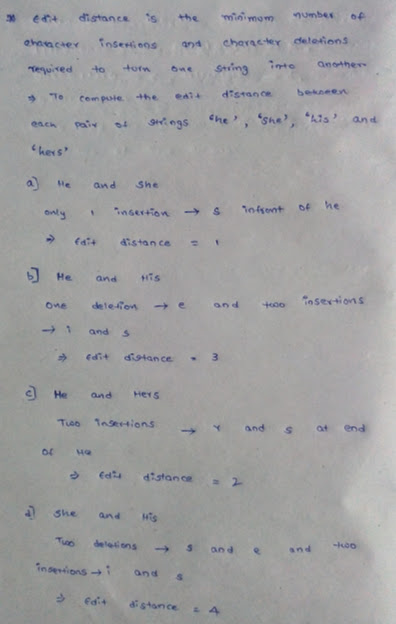 * Edit distance is the minimum number of
character insertions and character deletions
required to turn one string into another
⇒ To compute the edit distance between
each pair of strings 'he', 'she', 'his' and
'hers'
a] He and She
only 1 insertion → s infront of he
⇒ Edit distance = 1
b] He and His
one deletion → e and two insertions
→ i and s
⇒ edit distance = 3
c] He and Hers
Two insertions → r and s at end
of He
⇒ Edit distance = 2
d] She and His
Two deletions → s and e and two
insertions → i and s
⇒ Edit distance = 4